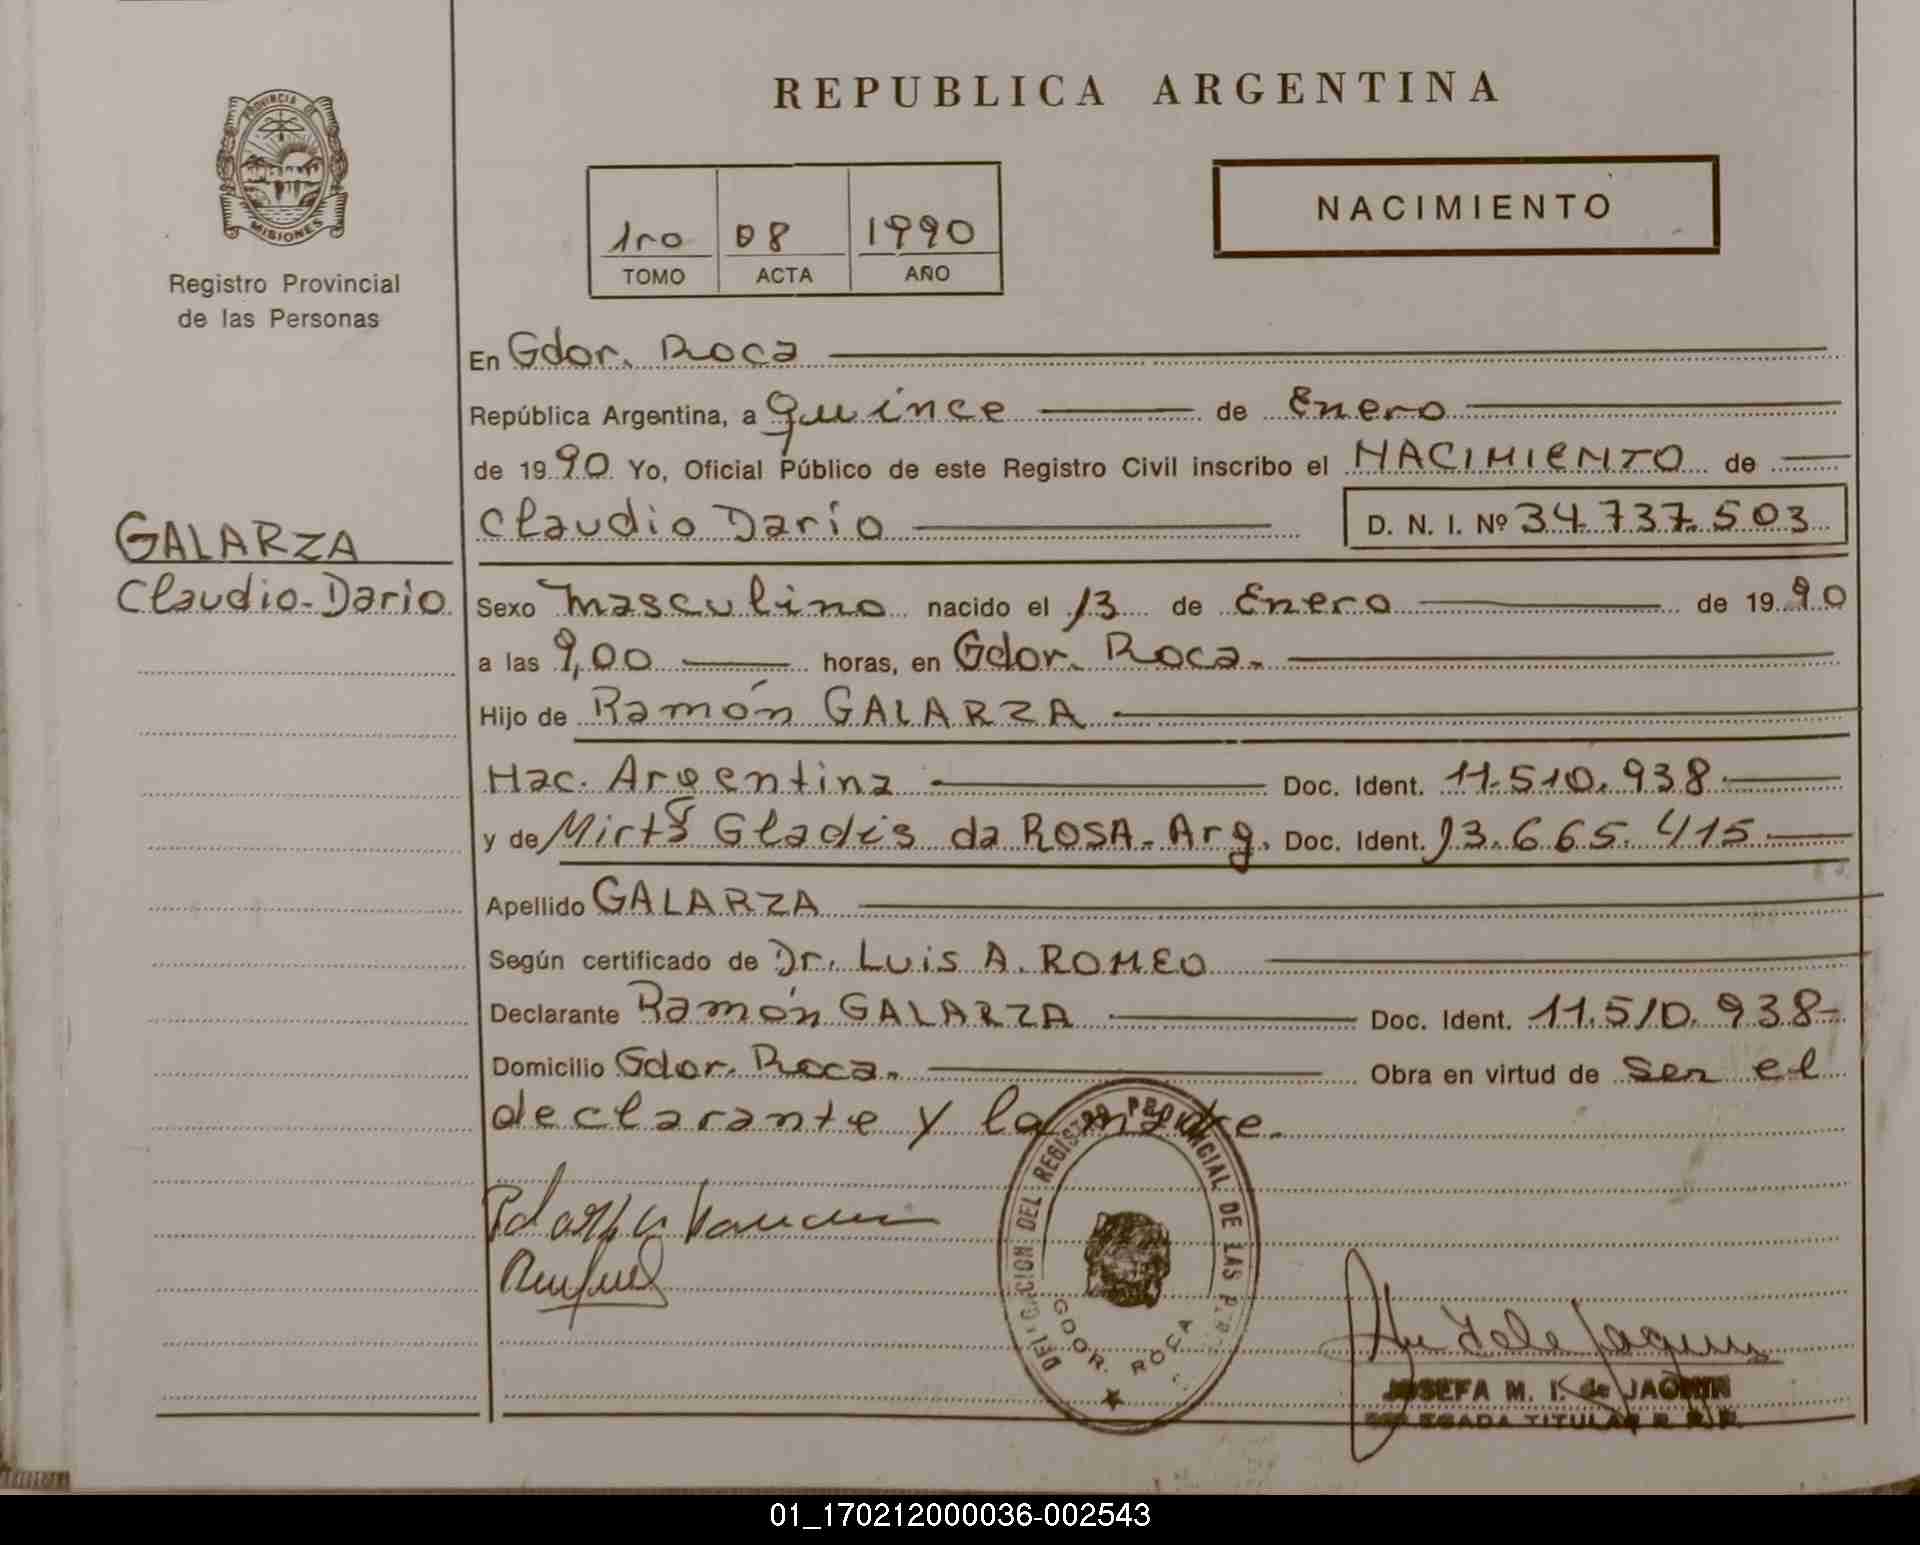 REPUBLICA ARGENTINA
PROVINCIA DE
MISIONES
Registro Provincial
de las Personas
1ro 08 1990
TOMO ACTA AÑO
NACIMIENTO
En Gdor. Roca
República Argentina, a quince de Enero
de 1990 Yo, Oficial Público de este Registro Civil inscribo el NACIMIENTO de
Claudio Dario D. N. I. Nº 34.737.503
GALARZA
Claudio-Dario
Sexo masculino nacido el 13 de Enero de 1990
a las 9,00 horas, en Gdor. Roca.
Hijo de Ramón GALARZA
Nac. Argentina Doc. Ident. 11.510.938
y de Mirta Gladis da ROSA-Arg. Doc. Ident. 13.665.415
Apellido GALARZA
Según certificado de Dr. Luis A. ROMEO
Declarante Ramón GALARZA Doc. Ident. 11.510.938-
Domicilio Gdor. Roca. Obra en virtud de ser el
declarante y la madre.
DELEGACION DEL REGISTRO PROVINCIAL DE LAS
GDOR. ROCA
JOSEFA M. I. de JAQUIN
DELEGADA TITULAR R. P. P.
01_170212000036-002543